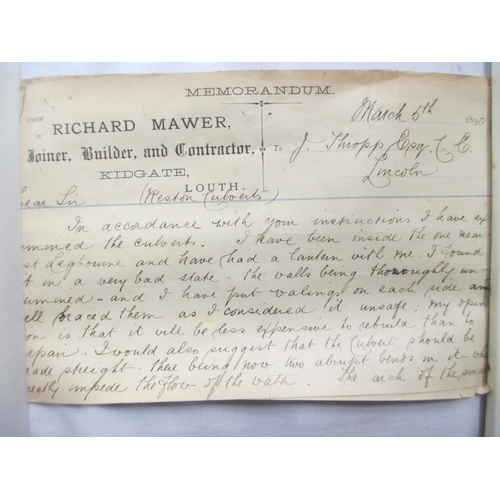 MEMORANDUM.
FROM
RICHARD MAWER,
Joiner, Builder, and Contractor,
KIDGATE,
LOUTH.
March 5th 1890
To J. Thropp Esq. C.E.
Lincoln
ear Sir (Reston Culverts)
In accordance with your instructions I have ex
mined the culverts. I have been inside the one near-
st Legbourne and have had a lantern with me. I found
it in a very bad state - the walls being thoroughly un-
ermined - and I have put walings on each side an
ell braced them as I considered it unsafe, my opin
on is that it will be less expensive to rebuild than to
epair. I would also suggest that the culvert should be
ade streight - there being now two abrupt bends in it - wh
reatly impede the flow of the water. The arch of the